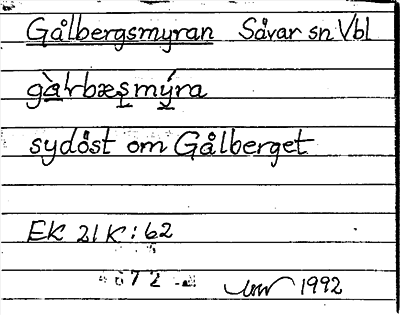 Gålbergsmyran Såvar sn Vbl
gàlrbæșmýra
sydöst om Gålberget
EK 21K:62
1992